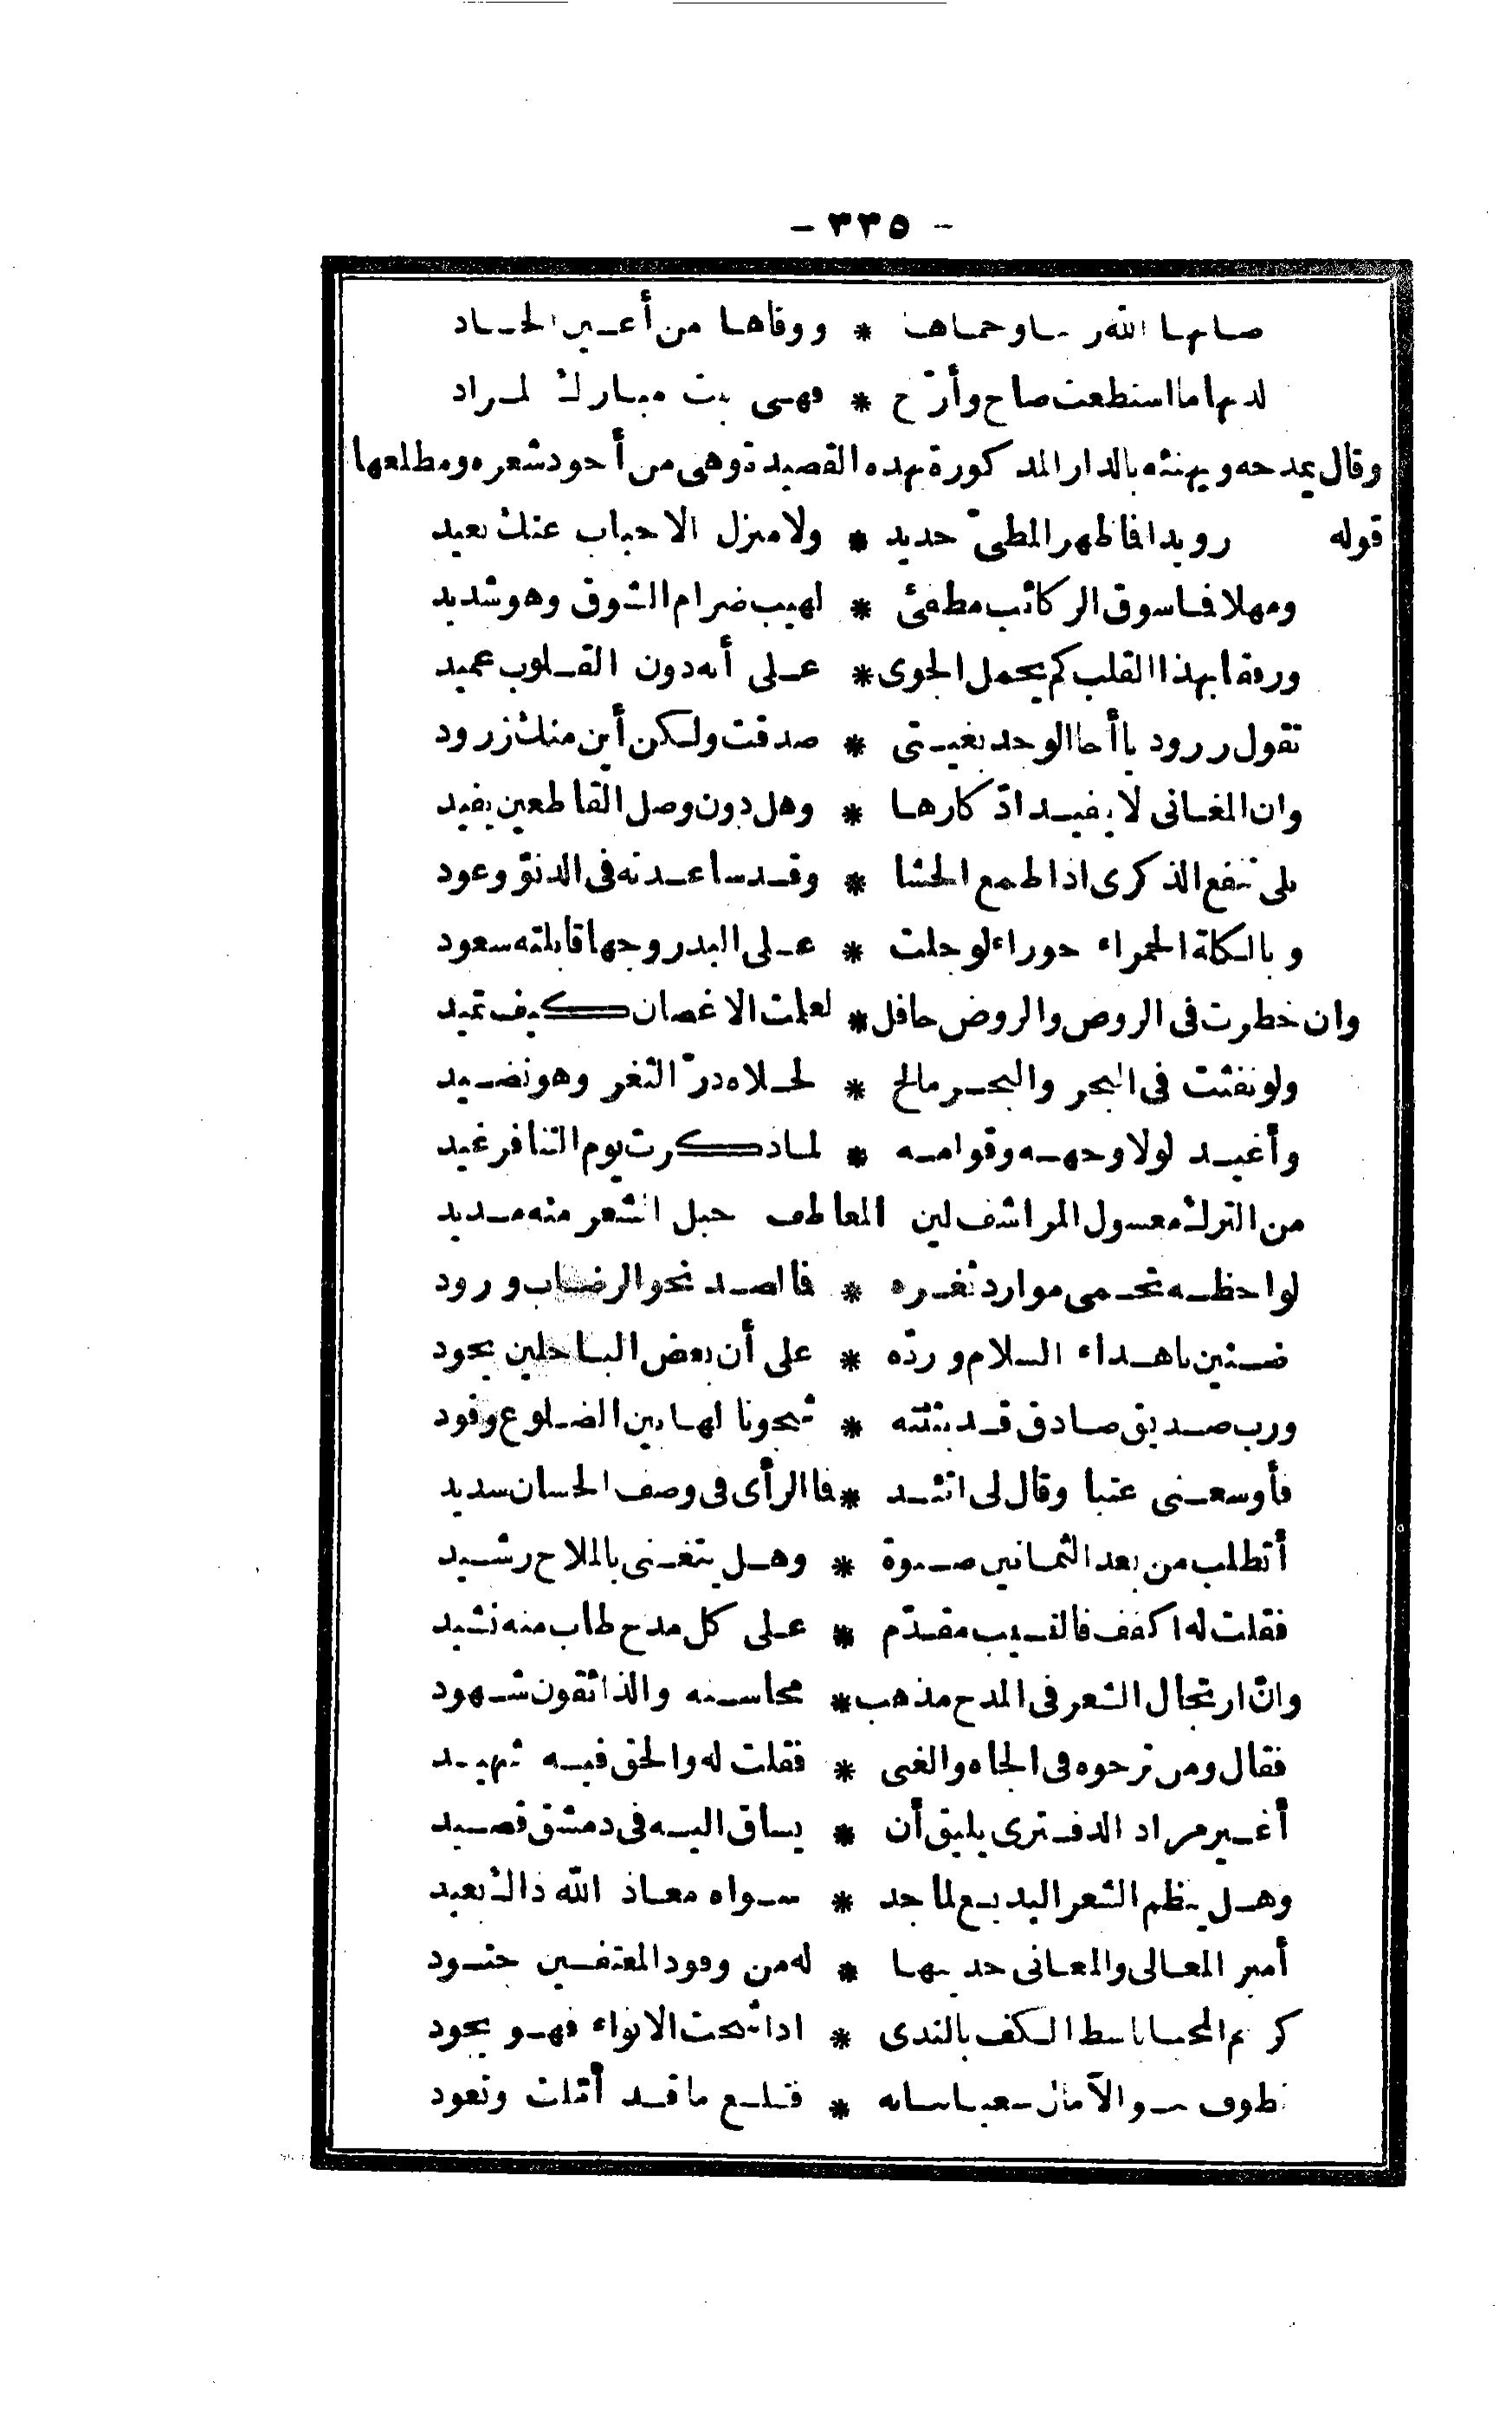 - ٣٣٥ -
صانها الله ربنا وحماها * ووقاها من أعين الحساد
لذ بها ما استطعت صاح وأرّخ * فهى بيت مبارك لمراد
وقال يمدحه ويهنئه بالدار المذكورة بهذه القصيدة وهى من أجود شعره ومطلعها
قوله رويدا فما ظهر المطىّ حديد * ولا منزل الاحباب عنك بعيد
ومهلا فما سوق الركائب مطفئ * لهيب ضرام الشوق وهو شديد
ورفقا بهذا القلب كم يحمل الجوى * عـلى أنه دون القـلوب عميد
تقول زرود يا أخا الوجد بغيـتى * صدقت ولكن أين منك زرود
وان المغانى لا يفيـد ادّكارها * وهل دون وصل القاطعين يفيد
بلى تنفع الذكرى اذا طمع الحشا * وقـد ساعـدته فى الدنوّ وعود
وبالكلة الحمراء حوراء لو جلت * عـلى البدر وجها قابلته سعود
وان خطرت فى الروض والروض حافل * لعلمت الاغصان كيف تميد
ولو نفثت فى البحر والبحـر مالح * لحـلاه درّ الثغر وهو نضـيد
وأغيـد لولا وجهـه وقوامـه * لمـا ذكرت يوم التنافر غيد
من الترك معسول المراشف لين المعاطف حبل الشعر منه مـديد
لواحظـه تحـمى موارد ثغـره * فما الصـد نحو الرضاب ورود
ضـنين باهـداء السلام وردّه * على أن بعض البـاخلين يجود
ورب صـديق صـادق قـد بثثته * شجونا لهـا بين الضـلوع وقود
فأوسعـنى عتبا وقال لى اتئـد * فما الرأى فى وصف الحسان سديد
أتطلب من بعد الثمـانين صـبوة * وهـل يتغـنى بالملاح رشـيد
فقلت له اكفف فالنسـيب مقـدّم * عـلى كل مدح طاب منه نشيد
وانّ ارتجال الشعر فى المدح مذهب * محاسـنه والذائقون شـهود
فقال ومن ترجوه فى الجاه والغنى * فقلت له والحق فيـه شهيـد
أغـير مراد الدفـترى يليق أن * يساق اليـه فى دمشق قصـيد
وهـل ينظم الشعر البديـع لماجد * سـواه معـاذ الله ذاك بعيد
أمير المعـالى والمعـانى جديـها * له من وفود المعتفـين جنـود
كريم المحيـا باسط الكف بالندى * اذا شحت الانواء فهـو يجود
تطوف بنـو الآمال سـعيا ببـابه * فتبلـغ ما قـد أمّلت وتعود